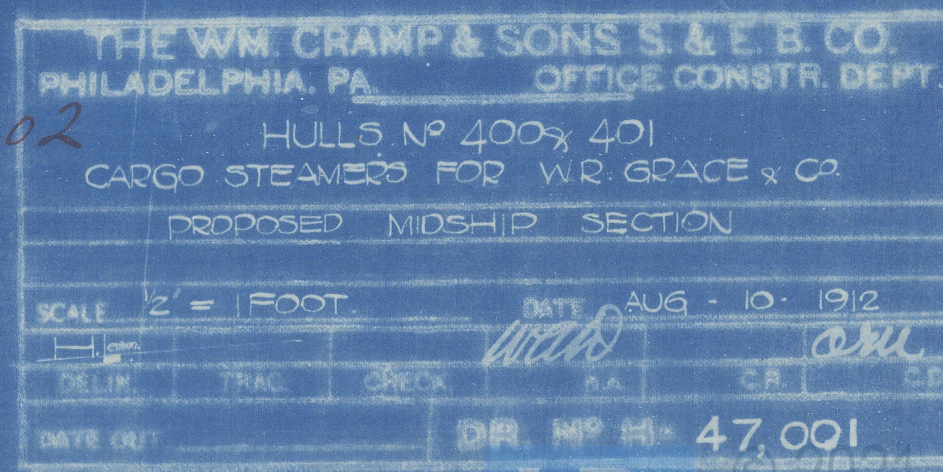 THE WM. CRAMP & SONS S. & E. B. CO.
PHILADELPHIA, PA. OFFICE CONSTR. DEPT.
02
HULLS Nº 400 & 401
CARGO STEAMERS FOR W.R. GRACE & Co.
PROPOSED MIDSHIP SECTION
SCALE 1/2" = 1 FOOT. DATE AUG - 10 - 1912
H.
DELIN. TRAC. CHECK C.R.
DATE OUT DR. Nº H- 47,001